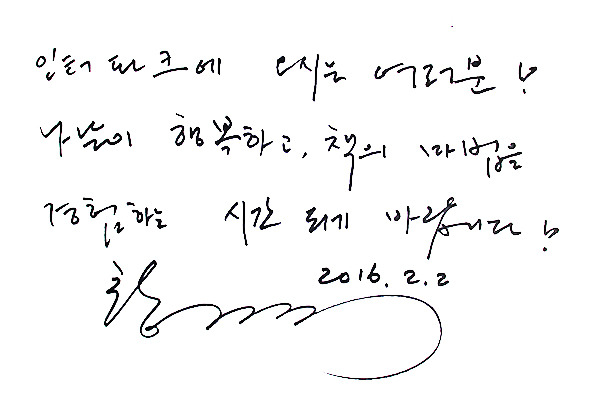 인터파크에 오시는 여러분!
나날이 행복하고, 책의 마법을
경험하는 시간 되게 바랍니다!
2016. 2. 2